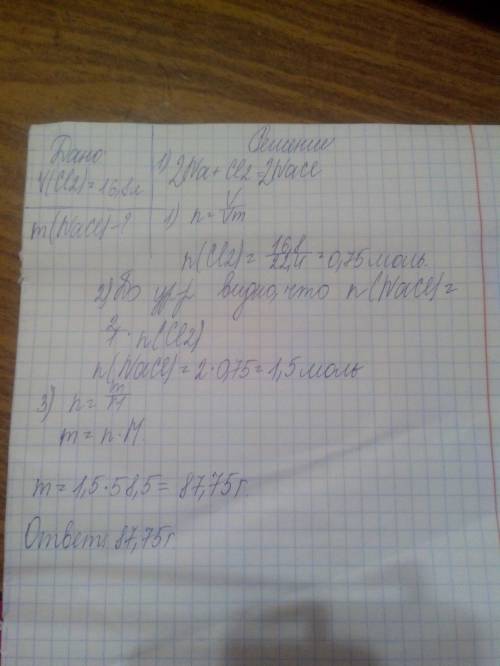 Дано
Решение
V(Cl2)=16,8л
1) 2Na + Cl2 = 2NaCl
m(NaCl)-?
1) n = V/Vm
n(Cl2) = 16,8/22,4 = 0,75 моль.
2) По ур-р видно, что n(NaCl)=
2/1 · n(Cl2)
n(NaCl) = 2·0,75 = 1,5 моль
3) n = m/M
m = n·M.
m = 1,5·58,5 = 87,75г.
Ответ: 87,75г